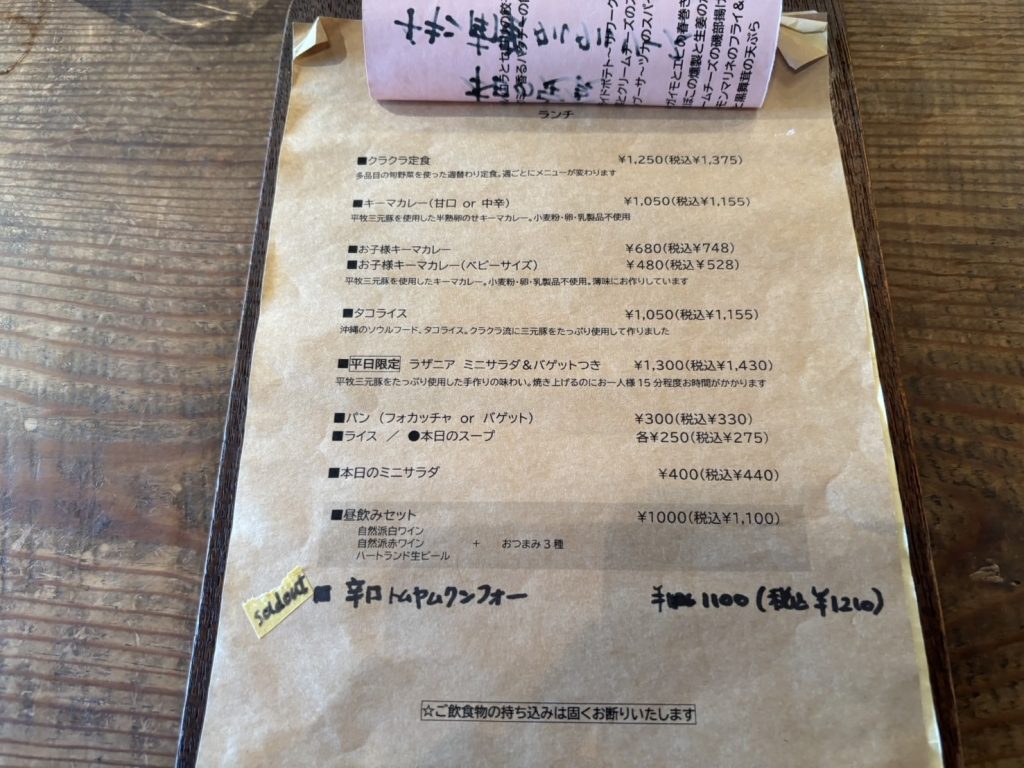 ランチ
■クラクラ定食 ¥1,250(税込¥1,375)
多品目の旬野菜を使った週替わり定食。週ごとにメニューが変わります
■キーマカレー(甘口 or 中辛) ¥1,050(税込¥1,155)
平牧三元豚を使用した半熟卵のせキーマカレー。小麦粉・卵・乳製品不使用
■お子様キーマカレー ¥680(税込¥748)
■お子様キーマカレー(ベビーサイズ) ¥480(税込¥528)
平牧三元豚を使用したキーマカレー。小麦粉・卵・乳製品不使用。薄味にお作りしています
■タコライス ¥1,050(税込¥1,155)
沖縄のソウルフード、タコライス。クラクラ流に三元豚をたっぷり使用して作りました
■平日限定 ラザニア ミニサラダ&バゲットつき ¥1,300(税込¥1,430)
平牧三元豚をたっぷり使用した手作りの味わい。焼き上げるのにお一人様15分程度お時間がかかります
■パン (フォカッチャ or バゲット) ¥300(税込¥330)
■ライス / ●本日のスープ 各¥250(税込¥275)
■本日のミニサラダ ¥400(税込¥440)
■昼飲みセット ¥1000(税込¥1,100)
自然派白ワイン
自然派赤ワイン + おつまみ3種
ハートランド生ビール
soldout ■ 辛口トムヤムクンフォー ¥1100(税込¥1210)
☆ご飲食物の持ち込みは固くお断りいたします